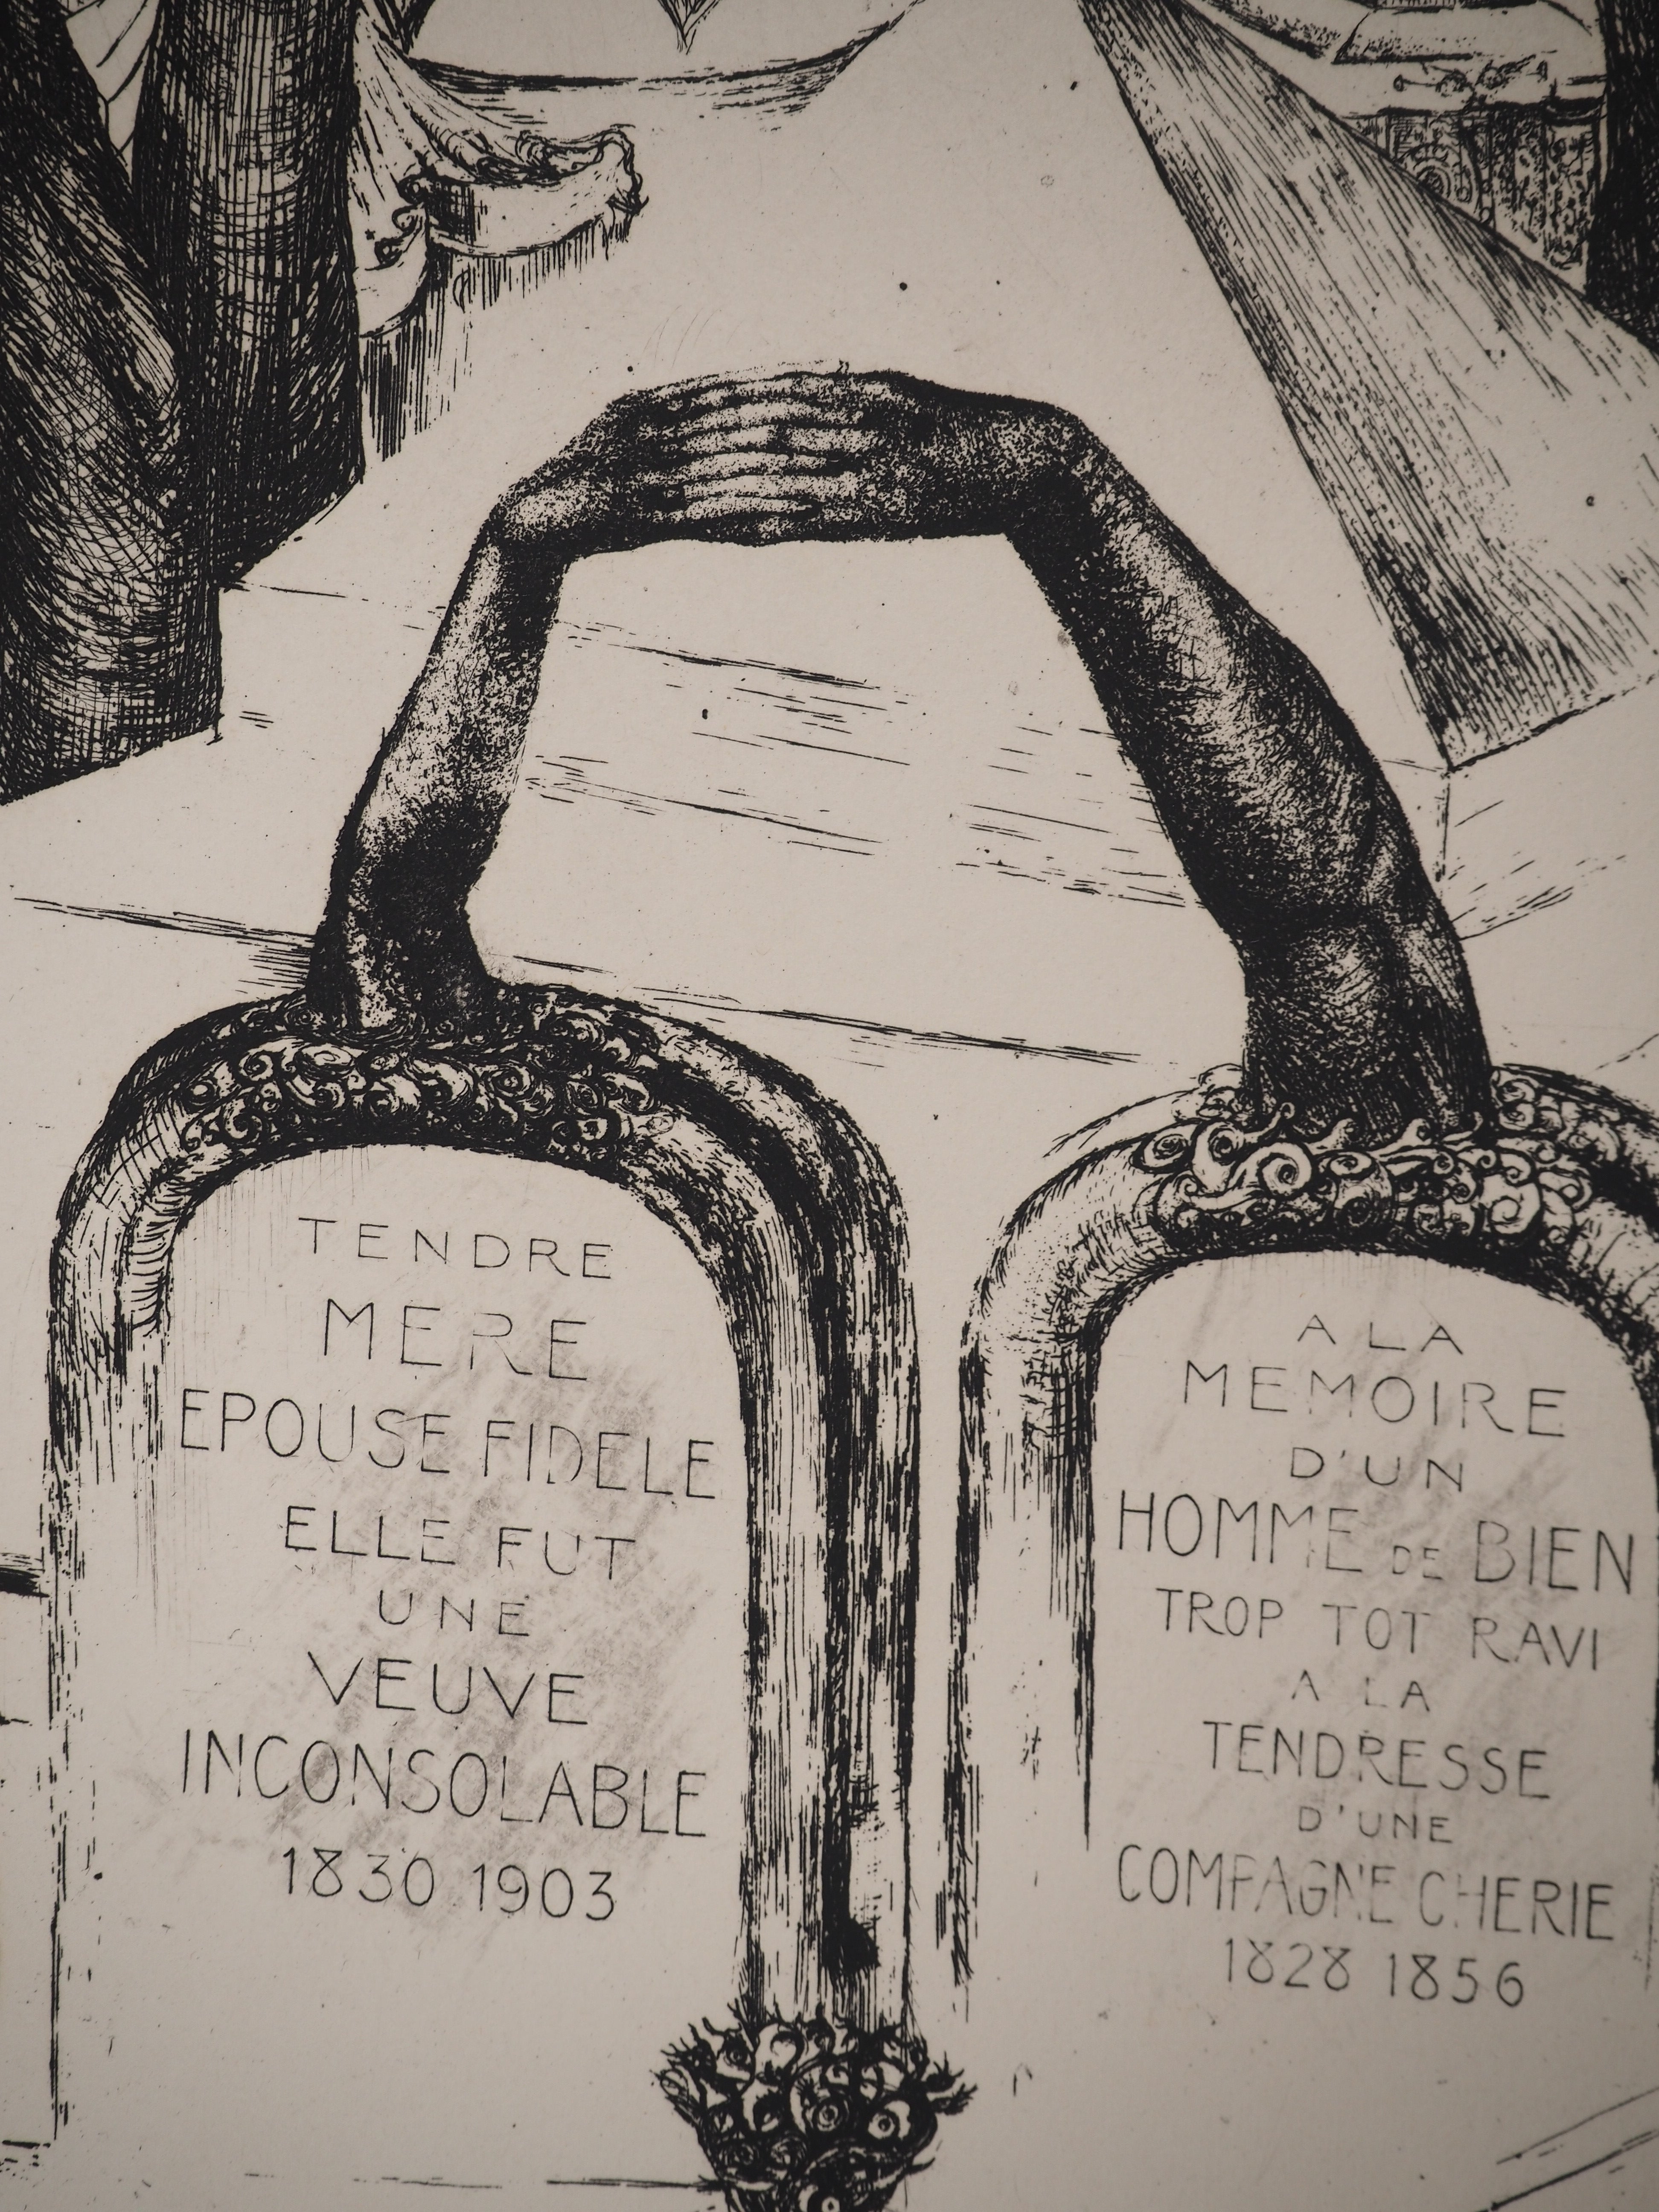 TENDRE
MERE
EPOUSE FIDELE
ELLE FUT
UNE
VEUVE
INCONSOLABLE
1830 1903
A LA
MEMOIRE
D'UN
HOMME DE BIEN
TROP TOT RAVI
A LA
TENDRESSE
D'UNE
COMPAGNE CHERIE
1828 1856